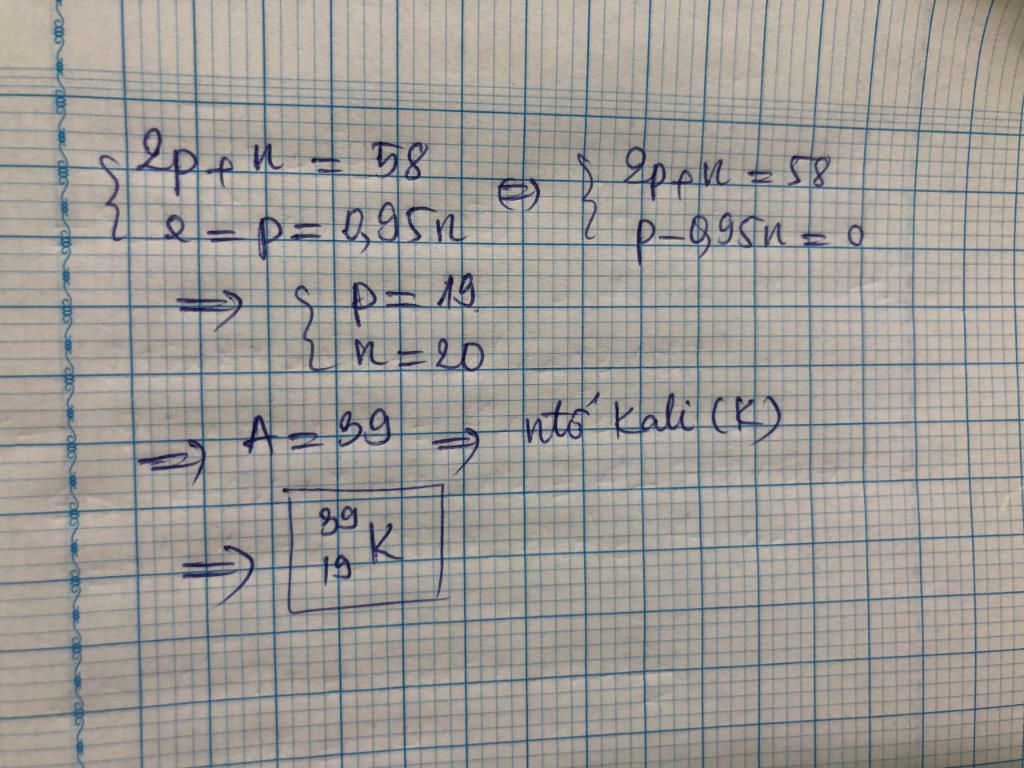 { 2p + n = 58 ⇔ { 2p + n = 58
e = p = 0,95n p – 0,95n = 0
⇒ { p = 19
n = 20
⇒ A = 39 ⇒ ntố Kali (K)
⇒ ³⁹₁₉K